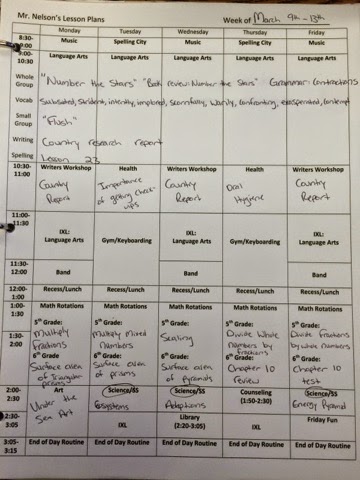 Mr. Nelson's Lesson Plans Week of March 9th - 13th
Monday Tuesday Wednesday Thursday Friday
8:30-9:00 Music Spelling City Music Spelling City Music
9:00-10:30 Language Arts Language Arts Language Arts Language Arts Language Arts
Whole Group "Number the Stars" "Book review: Number the Stars" Grammar: Contractions
Vocab Sabotaged, Strident, intently, implored, Scornfully, Warily, Confronting, exasperated, Contempt
Small Group "Flush"
Writing Country research report
Spelling Lesson 23
10:30-11:00 Writers Workshop Health Writers Workshop Health Writers Workshop
Country Report Importance of getting check-ups Country Report Oral Hygiene Country Report
11:00-11:30 IXL: Language Arts Gym/Keyboarding IXL: Language Arts Gym/Keyboarding IXL: Language Arts
11:30-12:00 Band Band Band
12:00-1:00 Recess/Lunch Recess/Lunch Recess/Lunch Recess/Lunch Recess/Lunch
1:00-1:30 Math Rotations Math Rotations Math Rotations Math Rotations Math Rotations
5th Grade: 5th Grade: 5th Grade: 5th Grade: 5th Grade:
1:30-2:00 Multiply Fractions Multiply Mixed Numbers Scaling Divide Whole numbers by fractions Divide fractions by whole numbers
6th Grade: 6th Grade: 6th Grade: 6th Grade: 6th Grade:
Surface area of Triangular prisms Surface area of prisms Surface area of pyramids Chapter 10 review Chapter 10 test
2:00-2:30 Art Science/SS Science/SS Counseling (1:50-2:30) Science/SS
Under the Sea Art Ecosystems Adaptations Energy Pyramid
2:30-3:05 IXL Library (2:20-3:05) IXL Friday Fun
3:05-3:15 End of Day Routine End of Day Routine End of Day Routine End of Day Routine End of Day Routine